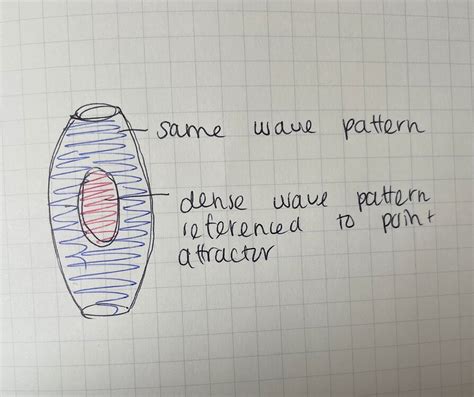 same wave pattern
dense wave pattern
referenced to point
attractor